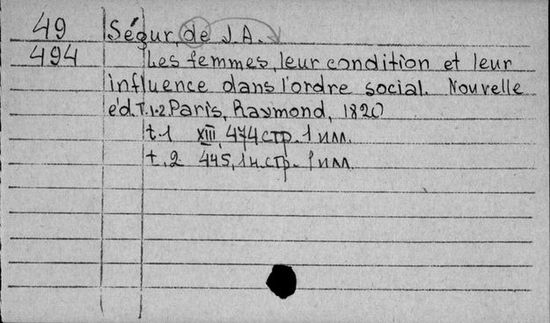 49 Ségur, de J.A.
494 Les femmes, leur condition et leur
influence dans l'ordre social. Nouvelle
éd. T.1-2. Paris, Raymond, 1820
t.1 XIII, 474 стр. 1 илл.
t.2 445, 1 н.стр. 1 илл.